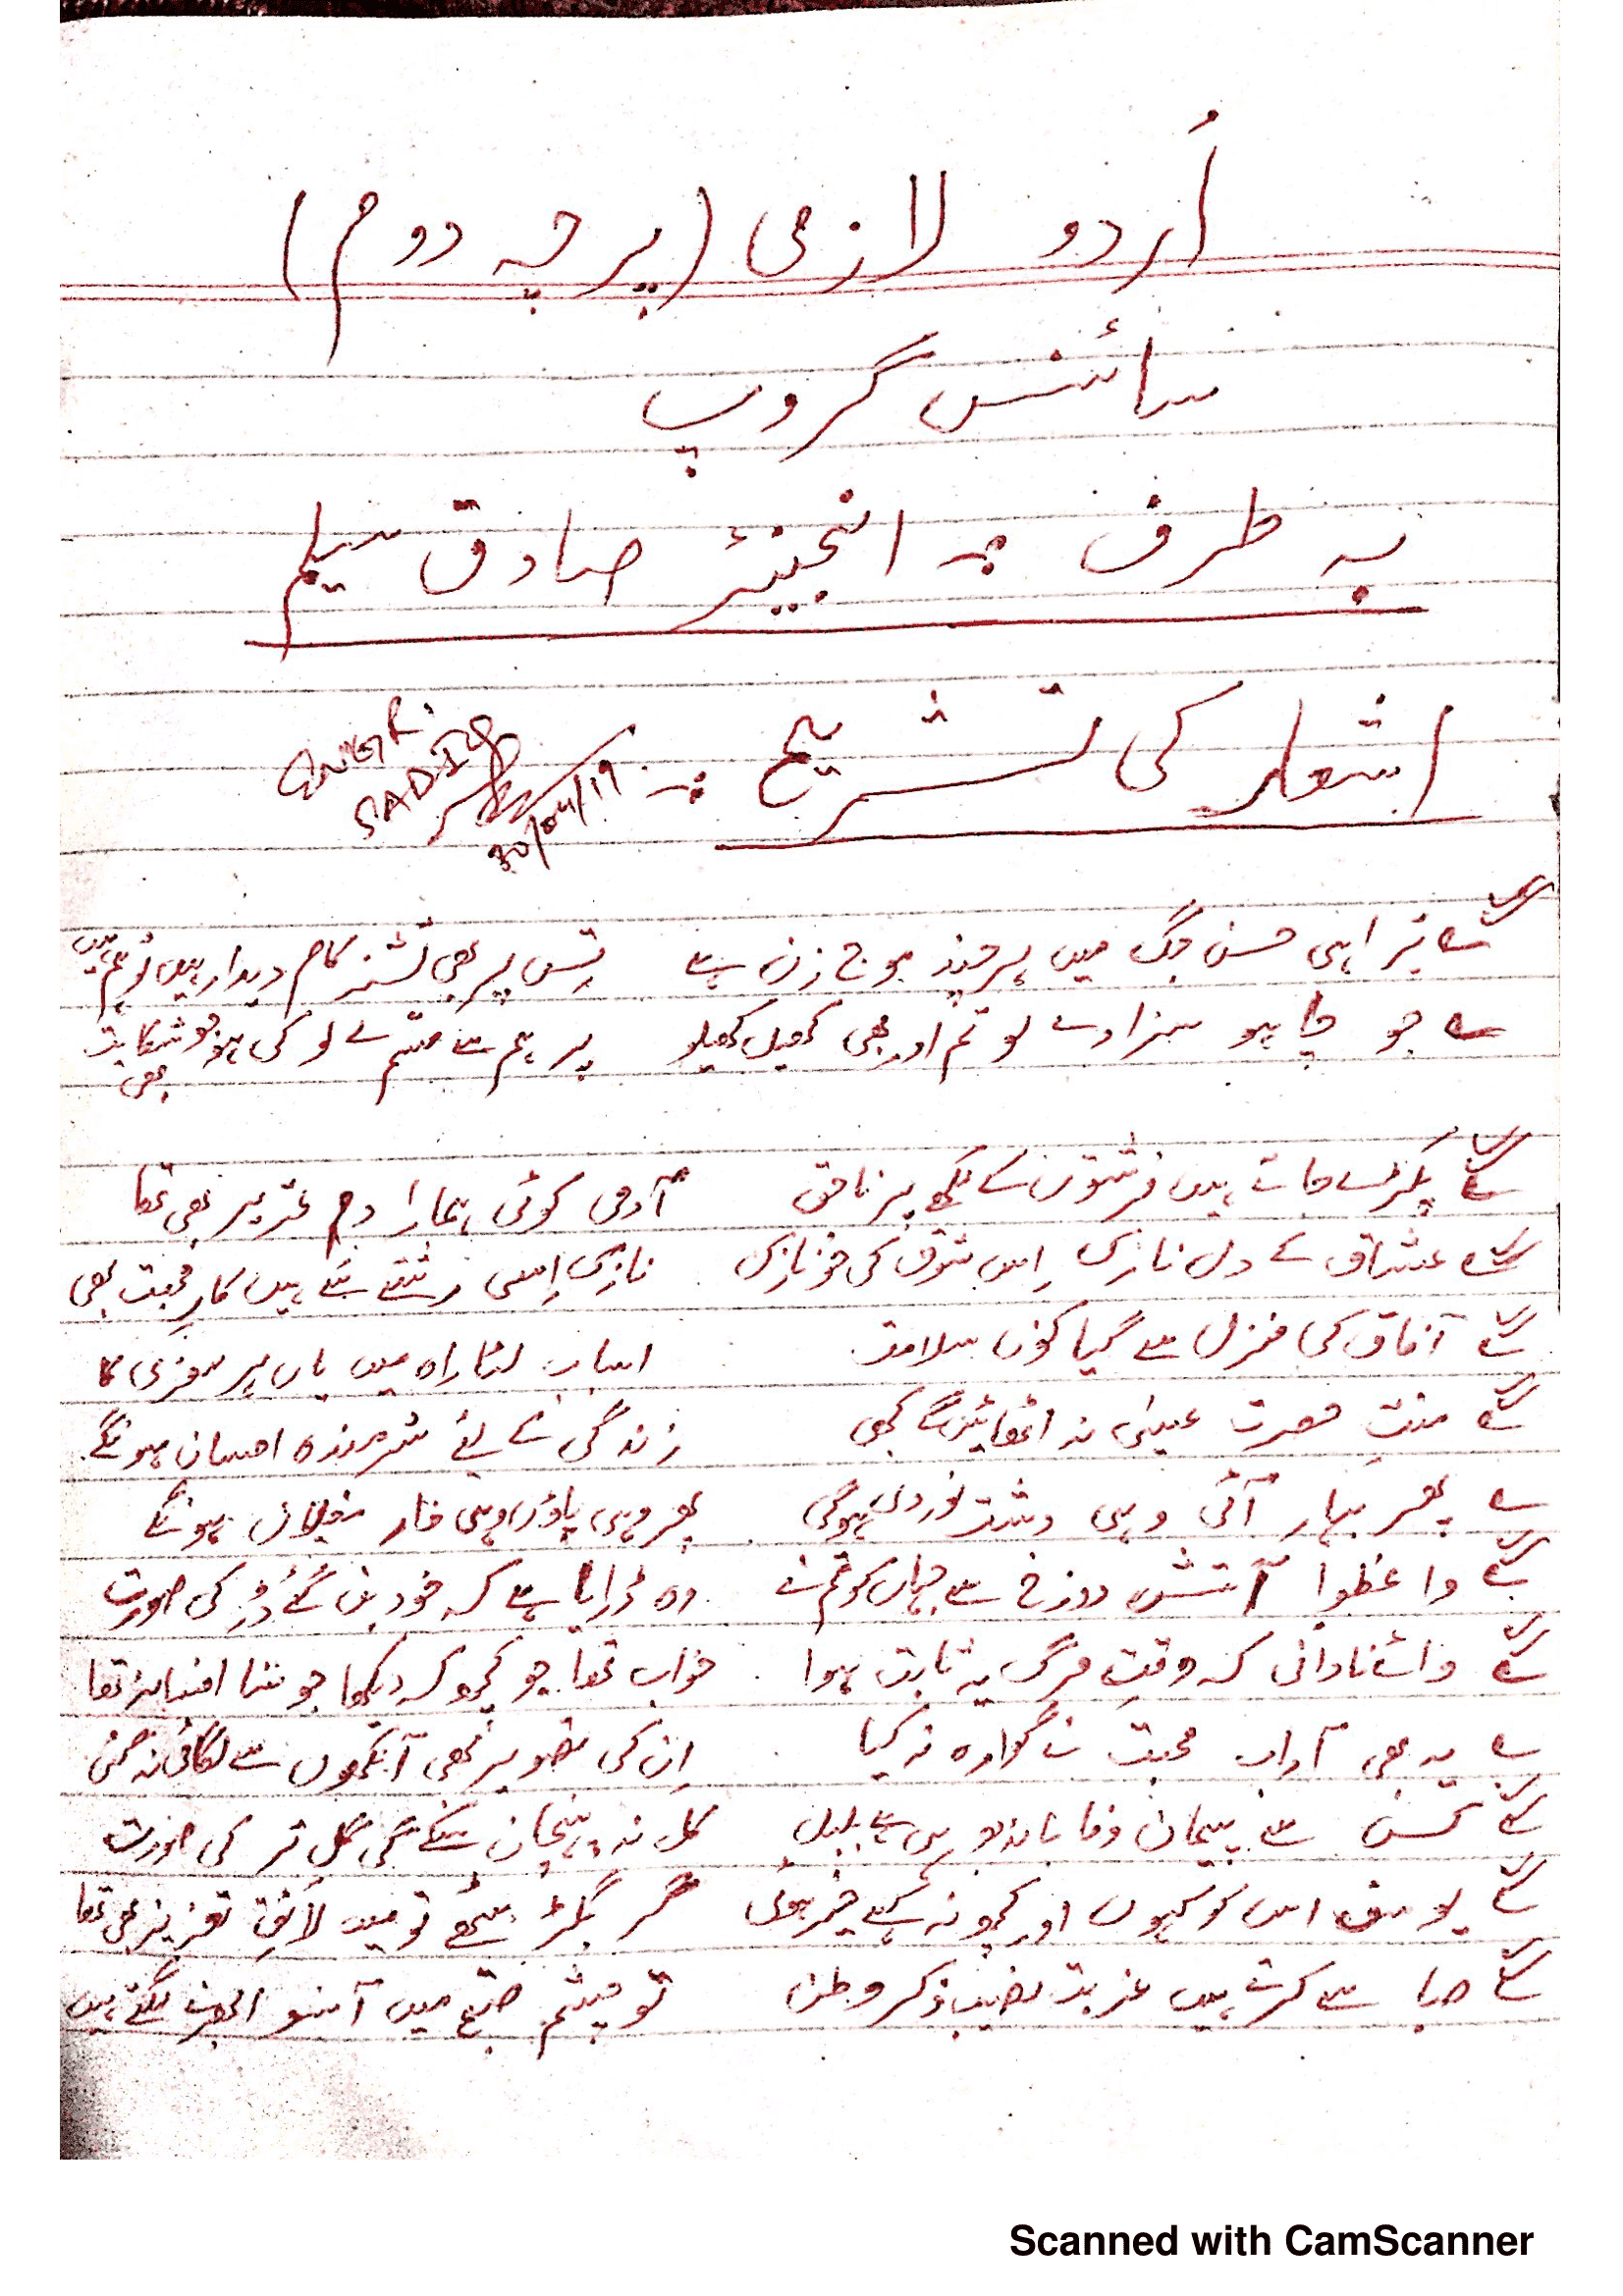 اُردو لازمی (پرچہ دوم)
سائنس گروپ
بہ طرف :- انجینئر صادق سلیم
اشعار کی تشریح :-
ENGR:
SADIQ
30/04/19
تیرا ہی حسن جگ میں ہرچند موج زن ہے تِس پر بھی تشنہ کام دیدار ہیں تو ہم ہیں
جو چاہو سزا دے لو تم اور بھی کھیل کھیلو پر ہم سے قسم لے لو کی ہو جو شکایت بھی
پکڑے جاتے ہیں فرشتوں کے لکھے پر ناحق آدمی کوئی ہمارا دمِ تحریر بھی تھا
عشاق کے دل نازک اس شوق کی خو نازک نازک اِسی رشتے سے ہیں کارِ محبت بھی
آفاق کی منزل سے گیا کون سلامت اسباب لٹا راہ میں یاں ہر سفری کا
منتِ حضرت عیسٰی نہ اٹھائیں گے کبھی زندگی کے لیے شرمندہ احسان ہونگے
پھر بہار آئی وہی دشت نوردی ہوگی پھر وہی پاؤں وہی خار مغیلاں ہونگے
واعظو! آتش دوزخ سے جہاں کو تم نے وہ ڈرایا ہے کہ خود بن گئے ڈر کی صورت
وائے نادانی کہ وقتِ مرگ یہ ثابت ہوا خواب تھا جو کچھ کہ دیکھا جو سنا افسانہ تھا
یہ بھی آداب محبت نے گوارہ نہ کیا اِن کی تصویر بھی آنکھوں سے لگائی نہ گئی
کس سے پیمان وفا باندھ رہی ہے بلبل کل نہ پہنچان سکے گی گل تر کی صورت
یوسف اس کو کہوں اور کچھ نہ کہے خیر ہوئی گر بگڑ بیٹھے تو میں لائقِ تعزیر بھی تھا
صبا سے کرتے ہیں غربت نصیب ذکر وطن تو چشم صبح میں آنسو ابھرنے لگتے ہیں
Scanned with CamScanner